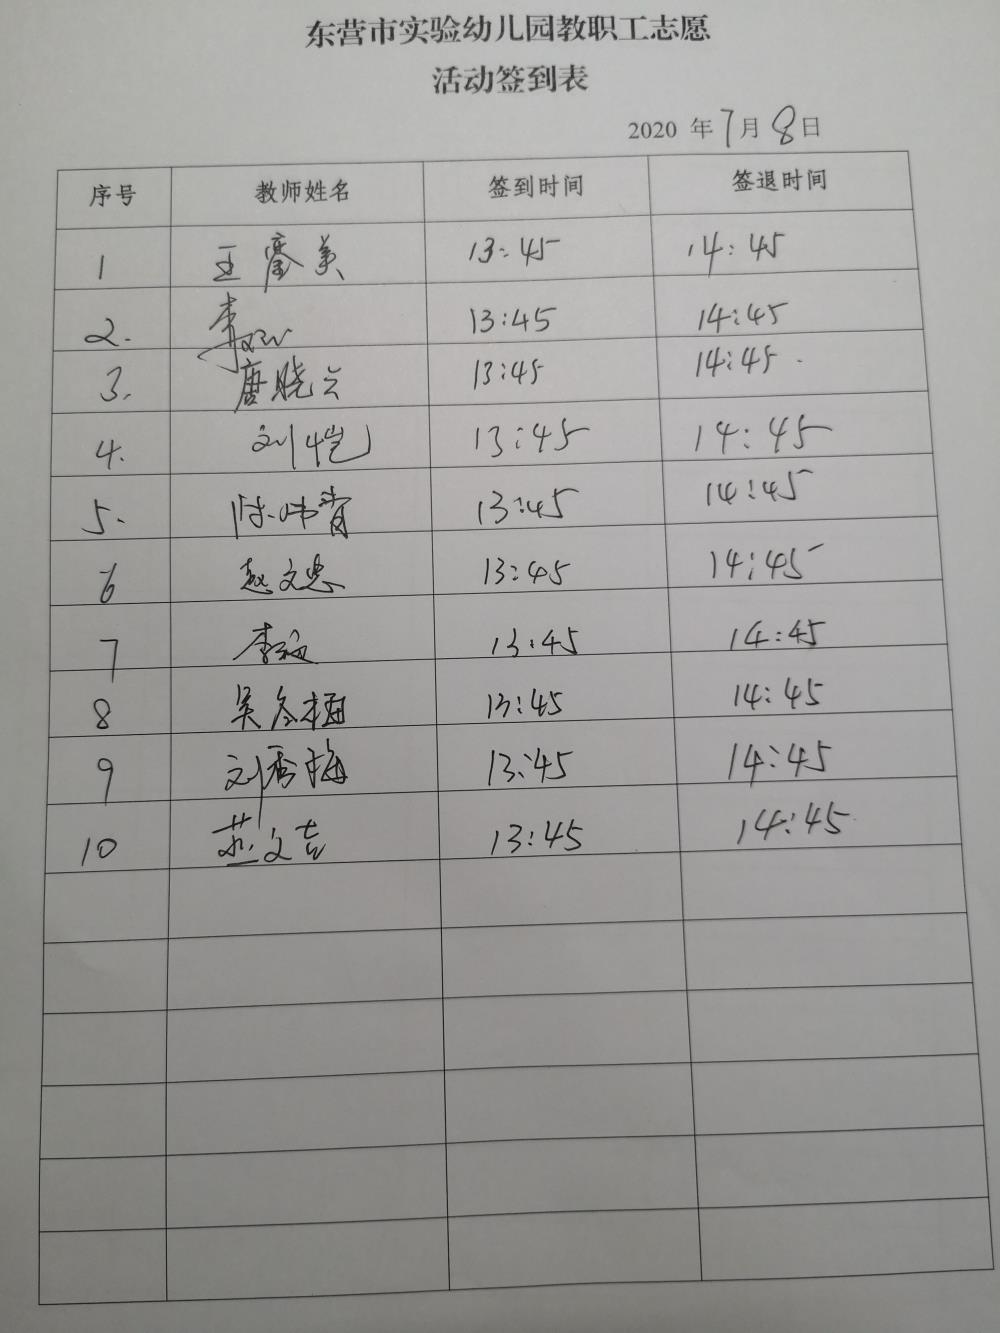 东营市实验幼儿园教职工志愿
活动签到表
2020 年 7月 8日
序号 教师姓名 签到时间 签退时间
1 王 美 13:45 14:45
2. 李 13:45 14:45
3. 唐晓云 13:45 14:45
4. 刘恺 13:45 14:45
5. 陈 13:45 14:45
6 赵文忠 13:45 14:45
7 李 13:45 14:45
8 吴冬梅 13:45 14:45
9 刘秀梅 13:45 14:45
10 燕文吉 13:45 14:45